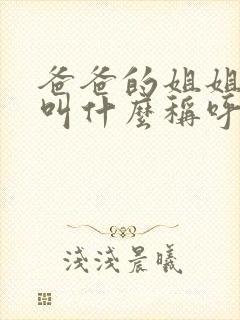 爸爸的姐姐
叫什麼稱呼
淺淺晨曦